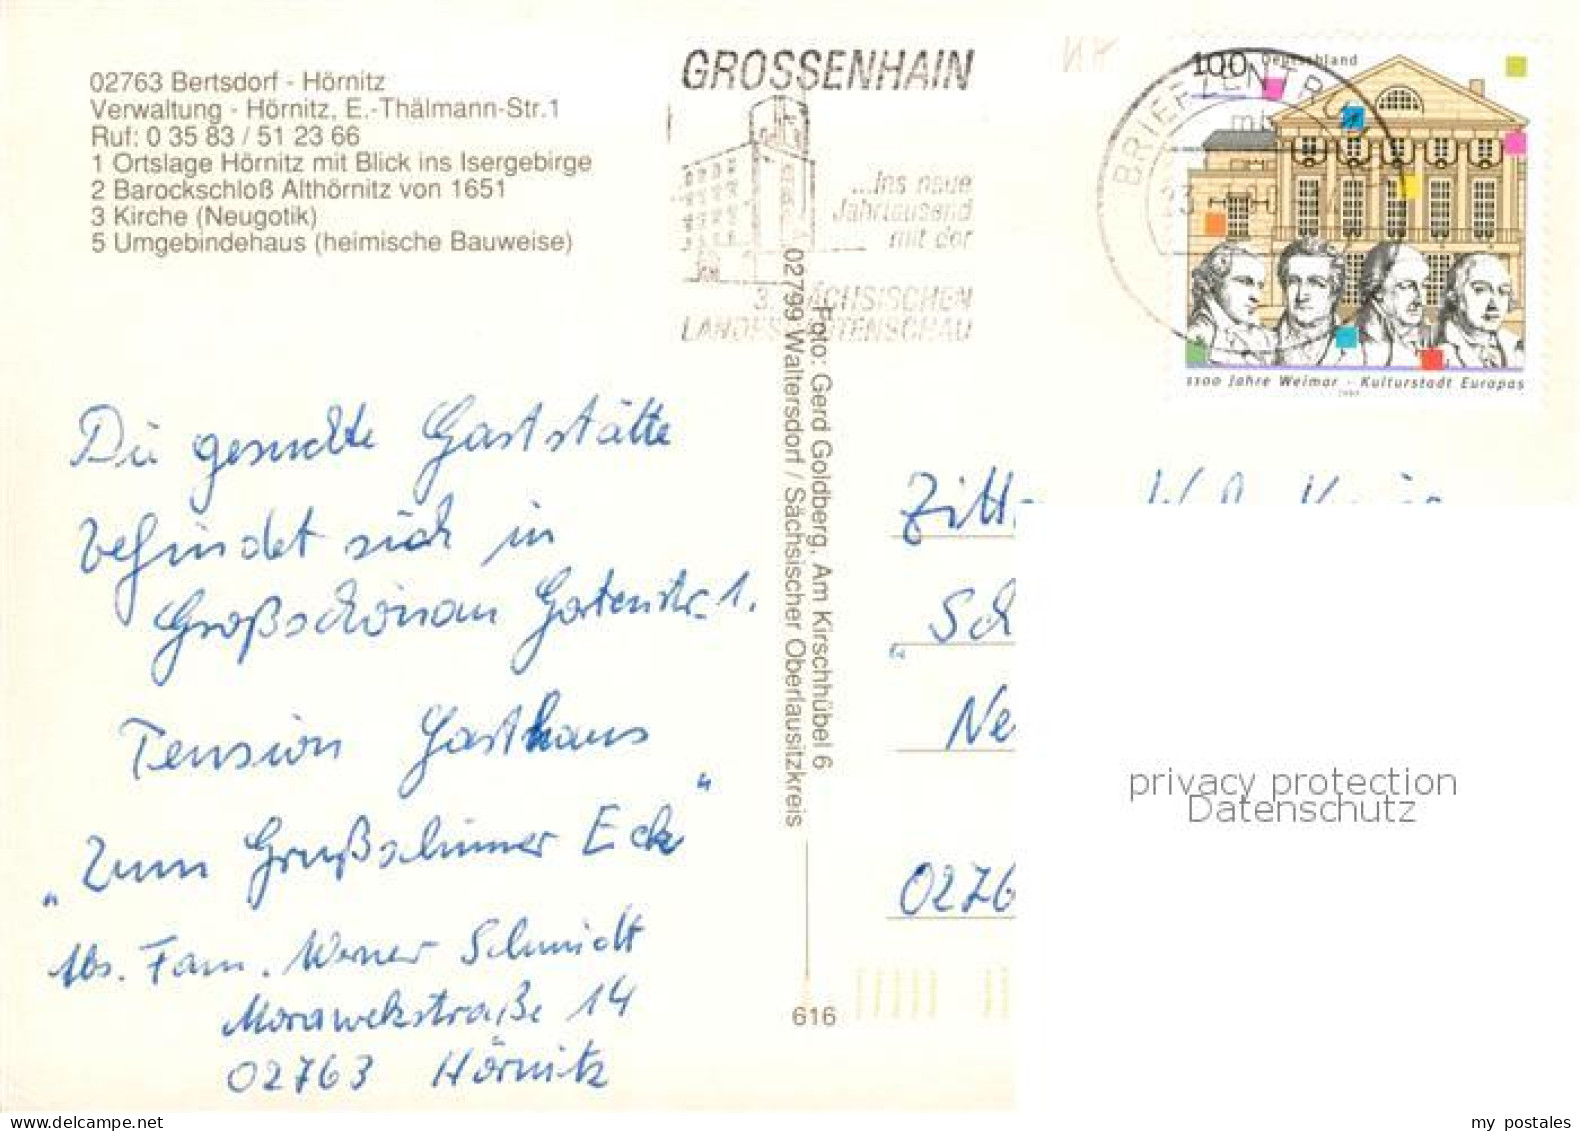 02763 Bertsdorf - Hörnitz
Verwaltung - Hörnitz, E.-Thälmann-Str.1
Ruf: 0 35 83 / 51 23 66
1 Ortslage Hörnitz mit Blick ins Isergebirge
2 Barockschloß Althörnitz von 1651
3 Kirche (Neugotik)
5 Umgebindehaus (heimische Bauweise)
GROSSENHAIN
...ins neue
Jahrtausend
mit der
3. SÄCHSISCHEN
LANDESGARTENSCHAU
BRIEFZENTRUM
100 Deutschland
1100 Jahre Weimar - Kulturstadt Europas
Die gesuchte Gaststätte
befindet sich in
Großschönau Gartenstr. 1.
Pension Gasthaus
"Zum Grußschinner Eck"
Abs. Fam. Werner Schmidt
Morawekstraße 14
02763 Hörnitz
Foto: Gerd Goldberg, Am Kirschhübel 6
02799 Waltersdorf / Sächsischer Oberlausitzkreis
616
Zitt
Sch
Ne
0276
privacy protection
Datenschutz
www.delcampe.net
my_postales